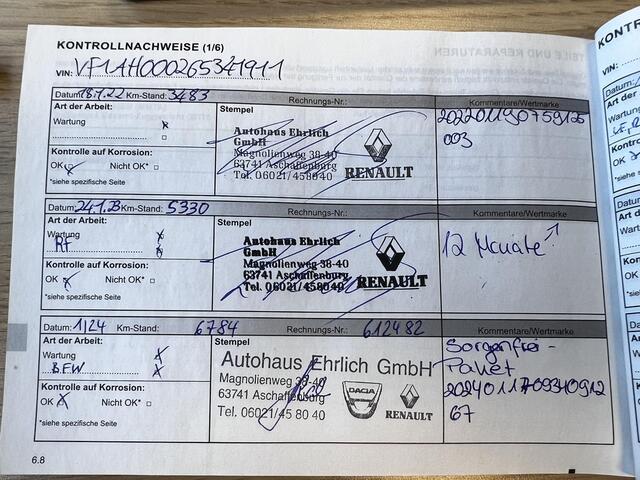 KONTROLLNACHWEISE (1/6)
VIN: VF1AH000265341911
Datum: 18.7.22 Km-Stand: 3483 Rechnungs-Nr.: Kommentare/Wertmarke
Art der Arbeit:
Wartung
Kontrolle auf Korrosion:
OK Nicht OK*
*siehe spezifische Seite
Stempel
Autohaus Ehrlich
GmbH
Magnolienweg 38-40
63741 Aschaffenburg
Tel. 06021/458040
RENAULT
003
Datum: 24.1.23 Km-Stand: 5330 Rechnungs-Nr.: Kommentare/Wertmarke
Art der Arbeit:
Wartung
Kontrolle auf Korrosion:
OK Nicht OK*
*siehe spezifische Seite
Stempel
Autohaus Ehrlich
GmbH
Magnolienweg 38-40
63741 Aschaffenburg
Tel. 06021/458040
RENAULT
12 Monate
Datum: 1/24 Km-Stand: 6784 Rechnungs-Nr.: 612482 Kommentare/Wertmarke
Art der Arbeit:
Wartung
BFW
Kontrolle auf Korrosion:
OK Nicht OK*
*siehe spezifische Seite
Stempel
Autohaus Ehrlich GmbH
Magnolienweg 38-40
63741 Aschaffenburg
Tel. 06021/45 80 40
DACIA
RENAULT
Sorgenfrei-
Paket
2024011709340912
67
6.8